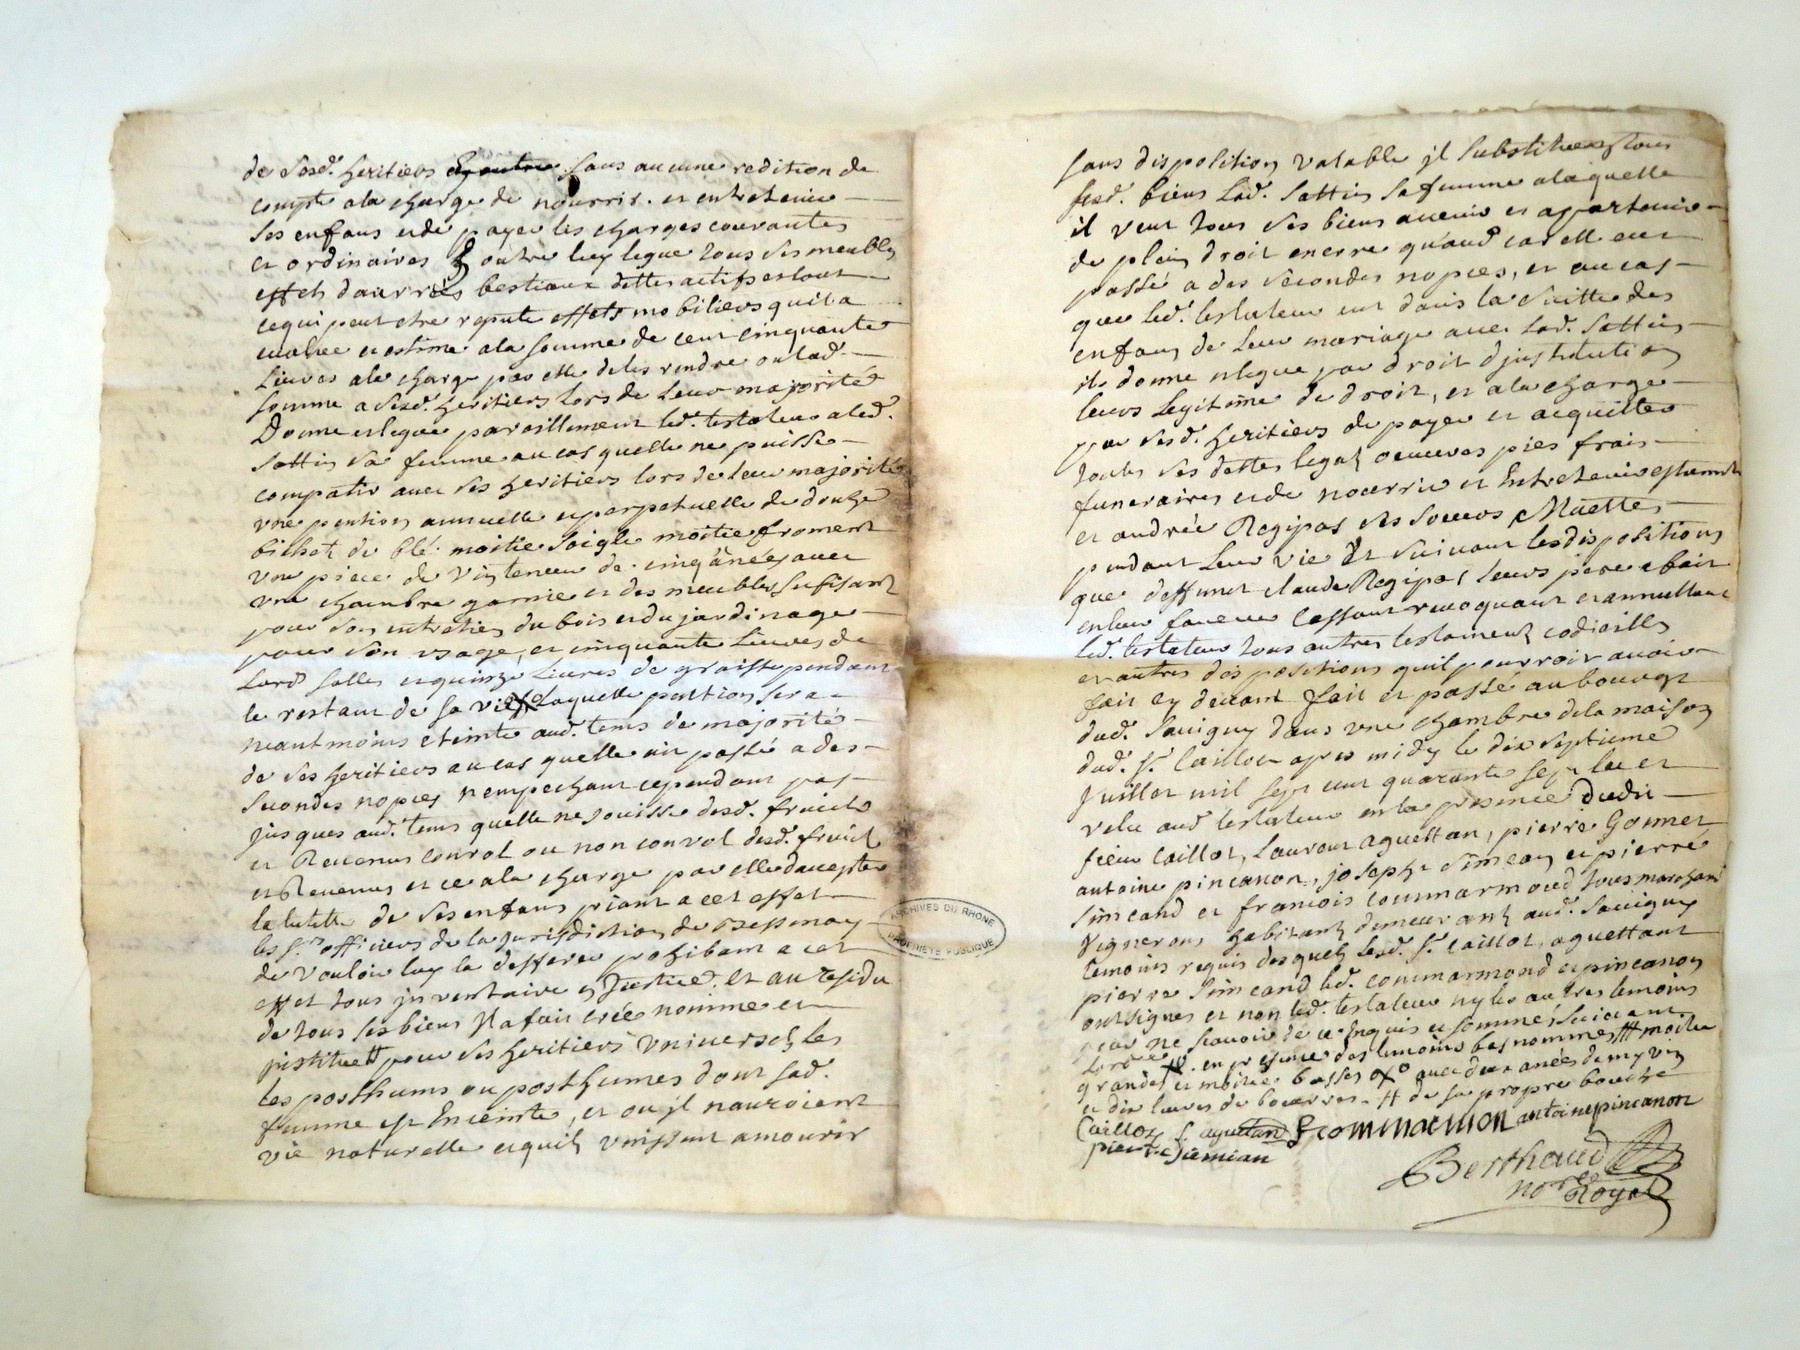 de sesd. heritiers sans aucune redition de
compte ala charge de nourrir. et entretenir
ses enfans et de payer les charges courantes
et ordinaires & outre luy legue tous ses meubles
effets danrrées bestiaux dettes actifs et tout
ce qui peut etre reputé effets mobiliers quil a
evalué et estimé ala somme de cent cinquante
Livres ala charge par elle de les rendre ou lad.
somme a sesd. heritiers lors de leur majorité
Donne et legue pareillement led. testateur a led.
Sottin sa femme au cas quelle ne puisse
compatir avec ses heritiers lors de leur majorité
vne pention annuelle et perpetuelle de douze
bichet de blé. moitié soigle moitié froment
vne piece de vin teneur de. cinq anées avec
vne chambre garnie et des meubles sufisant
pour son entretien du bois et du jardinage
pour son usage, et cinquante Livres de
Lard sallés et quinze Livres de graisse pendant
le restant de sa vie laquelle pention sera
neantmoins eteinte aud. tems de majorité
de ses heritiers au cas quelle ait passé a des
secondes nopces n'empechant cependant pas
jusques aud. tems quelle ne jouisse desd. fruicts
et Revenus convol ou non convol desd. fruict
et Revenus et ce ala charge par elle daccepter
la tutelle de ses enfans priant a cet effet
les srs. officiers de la jurisdiction de Bessenay
de vouloir luy la defferer prohibant a cet
effet tous jnventaire en Justice. et au residu
de tous ses biens Il a fait créé nommé et
jnstitué pour ses heritiers vniversels les
les posthums ou posthumes dont sad.
femme est Enceinte, et ou jl nauroient
vie naturelle et quils vinssent a mourir
sans disposition valable jl substitue a tous
sesd. biens lad. Sottin sa femme a laquelle
il veut tous ses biens avenir et appartenir
de plein droit encore qu'aud. cas elle eut
passé a des secondes nopces, et au cas
que led. testateur eut dans la suitte des
enfans de leur mariage avec lad. Sottin
il donne et legue par droit djnstitution
leurs legitime de droit, et ala charge
par sesd. heritiers de payer et acquitter
toutes ses dettes legats oeuvres pies frais
funeraires et de nourrir et Entretenir
et andrée Regipas ses soeurs Muettes
pendant leur vie Et suivant les dispositions
que deffunct claude Regipas leurs pere a fait
en leur faveur cassant revoquant et annullant
led. testateur tous autres testaments codicilles
et autres dispositions quil pourroit avoir
fait cy devant fait et passé au bourg
dud. Savigny dans vne chambre de la maison
dud. sr. Caillot apres midy le dix septieme
Juillet mil sept cent quarante sept leu et
relu aud. testateur en la presence dudit
sieur Caillot, Laurent aguettan, pierre Gonnet
antoine pincanon, joseph simean et pierre
simeand et francois commarmond tous marchand
vignerons habitants demeurants aud. Savigny
temoins requis desquels lesd. sr. Caillot, aguettant
pierre simeand led. commarmond et pincanon
ont signés et non led. testateur ny les autres temoins
pour ne scavoir de ce Enquis et sommé suivant
Lord. en presence des temoins bas nommes moitié
grandes et moitié basses avec deux anées demy vin
et dix livres de beurre de sa propre bouche
Caillot L. aguettand F commarmon antoine pincanon
pierre Siemian
Berthaud
nore. Royal
ARCHIVES DU RHONE
PROPRIETE PUBLIQUE